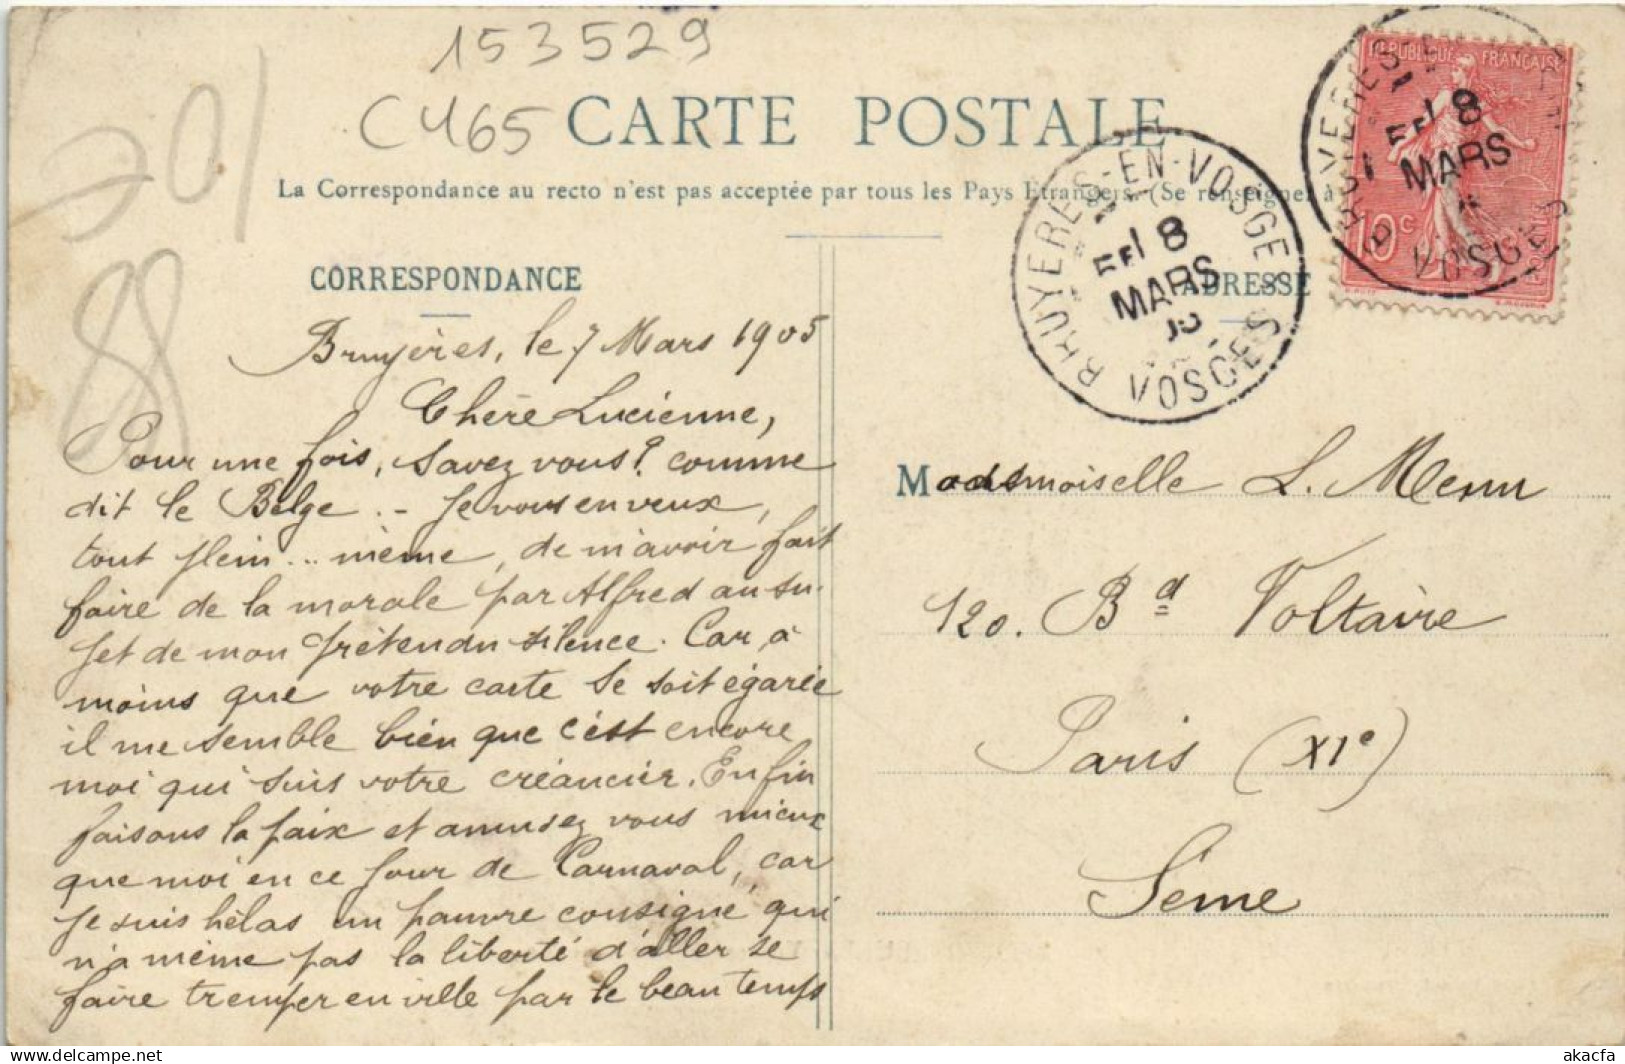 153529
C465
201
88
CARTE POSTALE
La Correspondance au recto n'est pas acceptée par tous les Pays Étrangers. (Se renseigner à
REPUBLIQUE FRANÇAISE
10 c
BRUYERES-EN-VOSGES
8
MARS
VOSGES
BRUYERES-EN-VOSGES
8
MARS
05
VOSGES
CORRESPONDANCE
Bruyères, le 7 Mars 1905
Chère Lucienne,
Pour une fois, savez vous? comme
dit le Belge. - Je vous en veux,
tout plein... même, de m'avoir fait
faire de la morale par Alfred au su-
jet de mon prétendu silence. Car, à
moins que votre carte se soit égarée
il me semble bien que c'est encore
moi qui suis votre créancier. Enfin
faisons la paix et amusez vous mieux
que moi en ce jour de Carnaval, car
je suis hélas un pauvre consigné qui
n'a même pas la liberté d'aller se
faire tremper en ville par le beau temps
ADRESSE
Mademoiselle L. Menu
120. Bd Voltaire
Paris (XIe)
Seine
akacfa